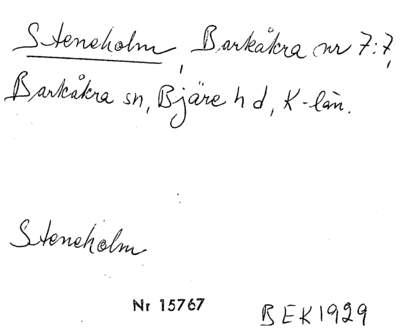 Steneholm, Barkåkra nr 7:7,
Barkåkra sn, Bjäre hd, K-län.
Steneholm
Nr 15767 BEK1929